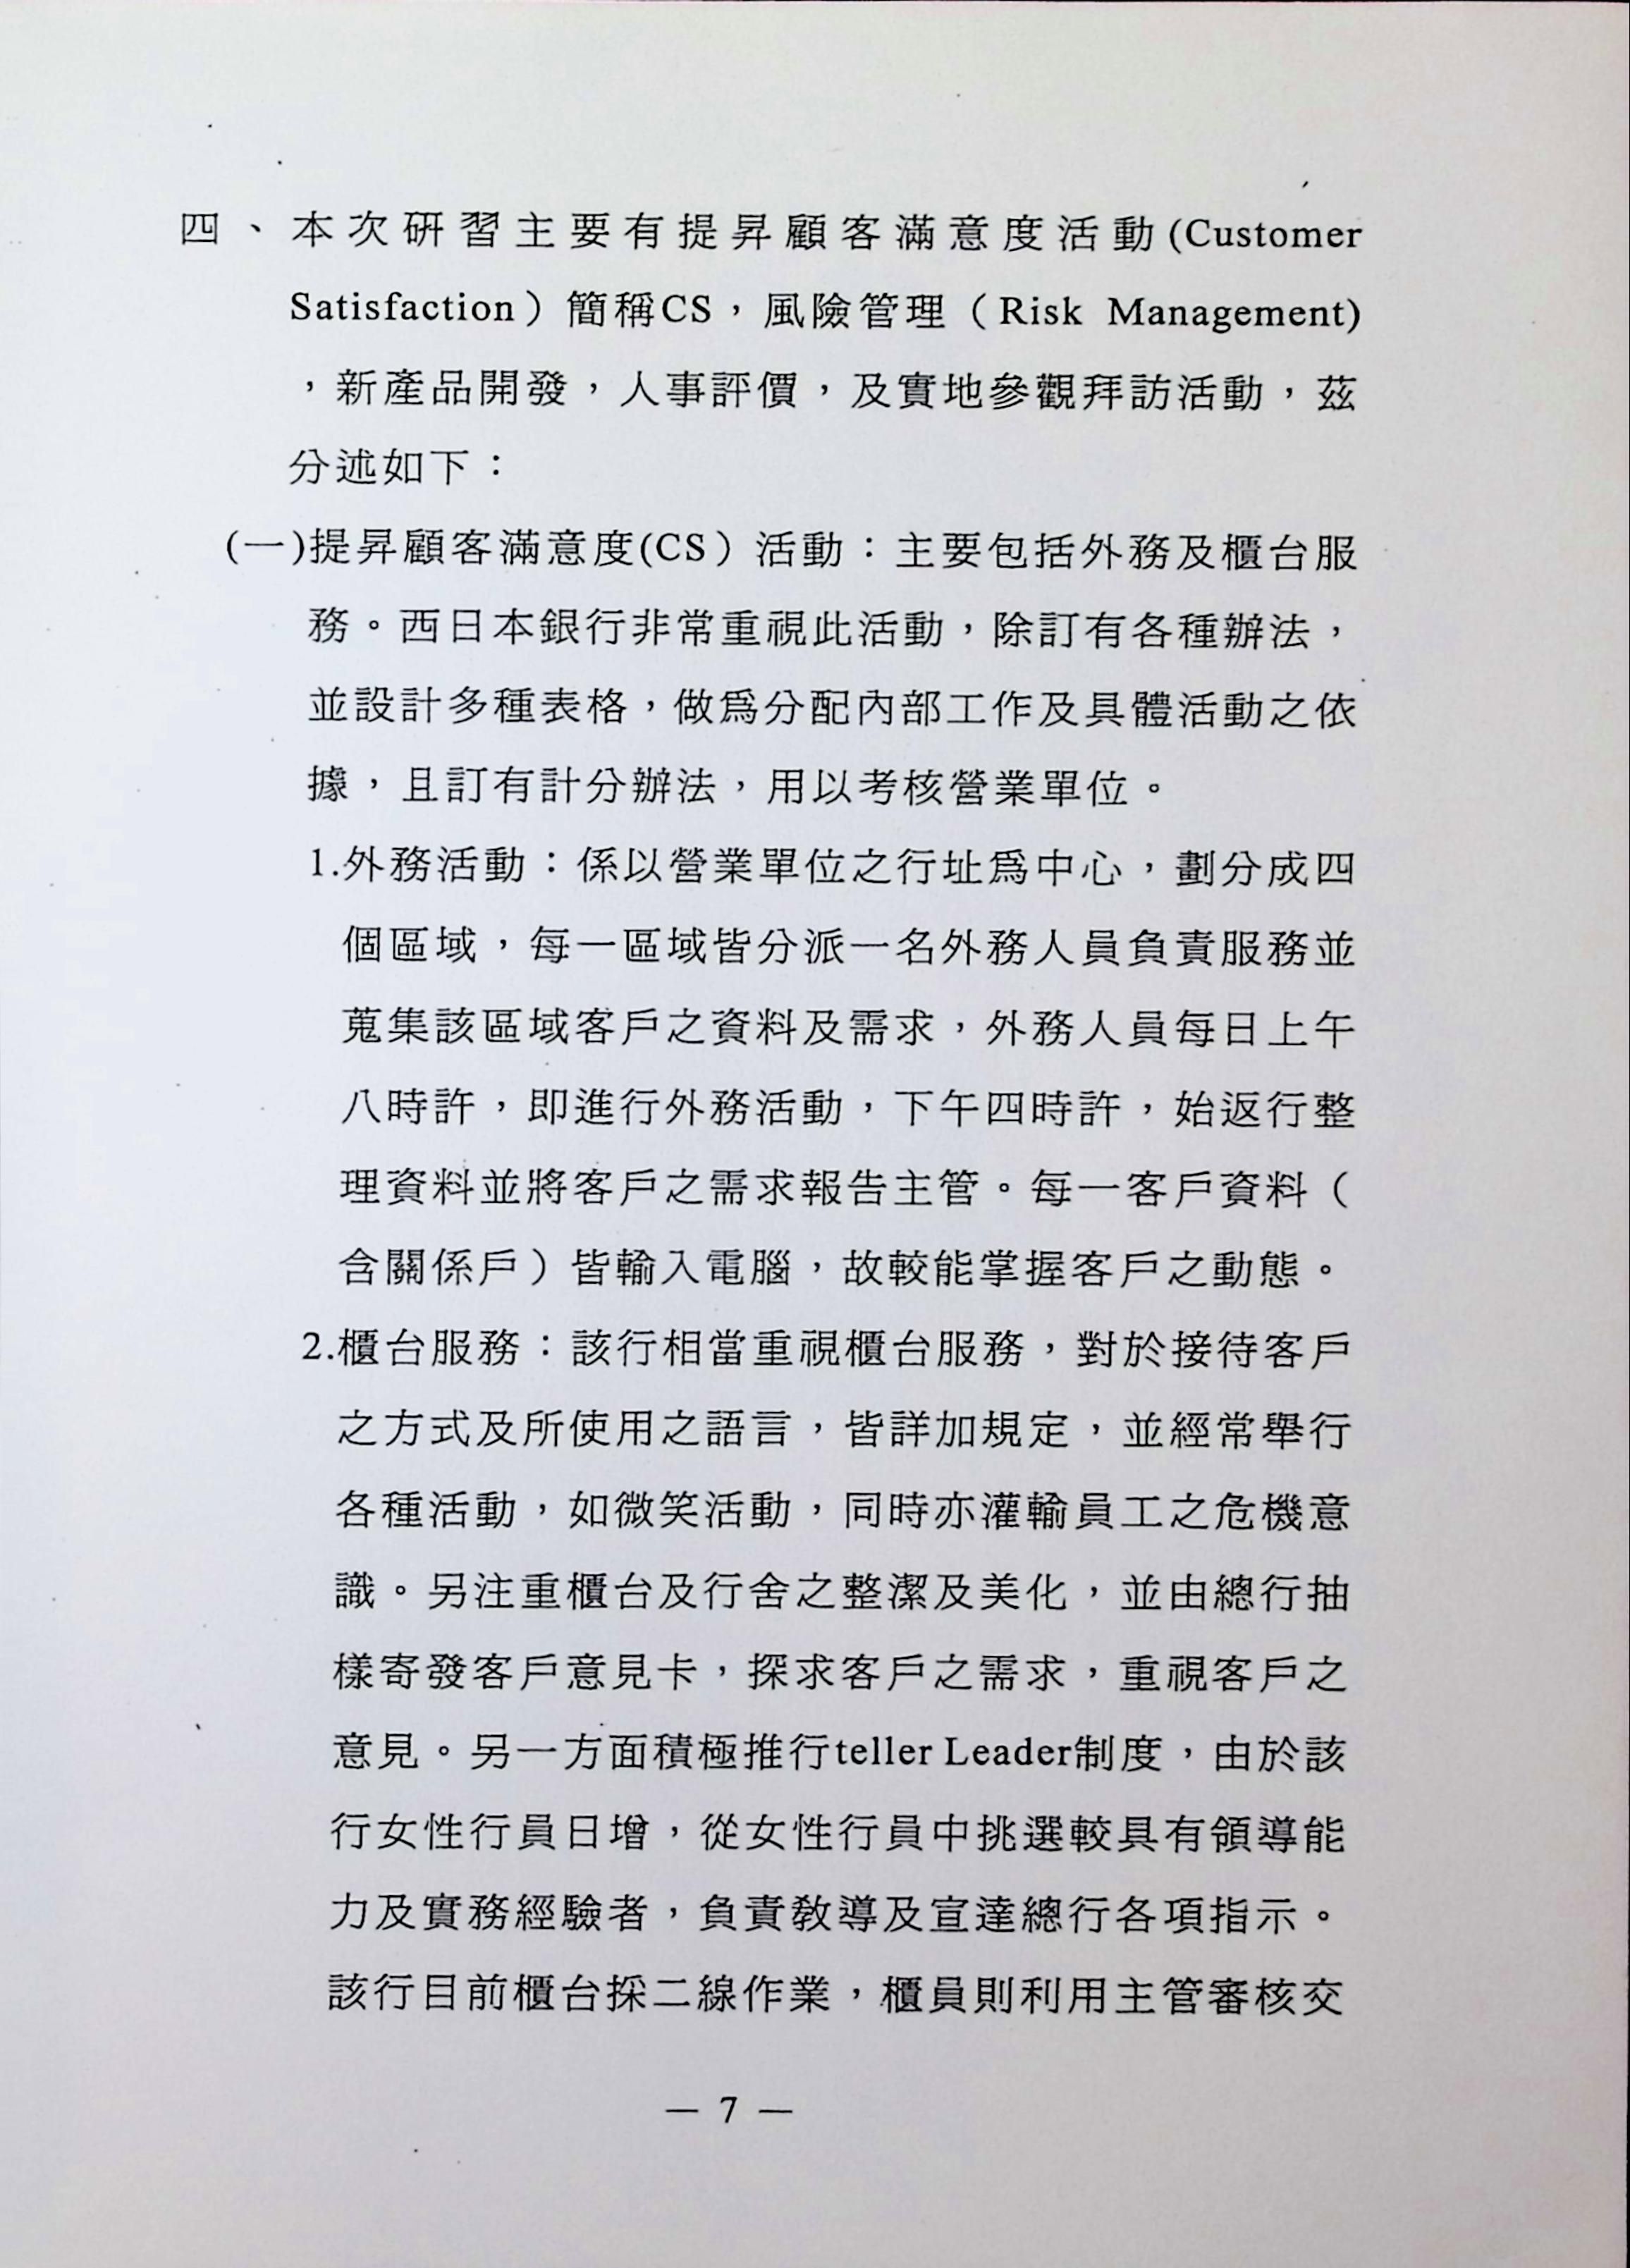 四、本次研習主要有提昇顧客滿意度活動(Customer
Satisfaction）簡稱CS，風險管理（Risk Management)
，新產品開發，人事評價，及實地參觀拜訪活動，茲
分述如下：
(一)提昇顧客滿意度(CS）活動：主要包括外務及櫃台服
務。西日本銀行非常重視此活動，除訂有各種辦法，
並設計多種表格，做爲分配內部工作及具體活動之依
據，且訂有計分辦法，用以考核營業單位。
1.外務活動：係以營業單位之行址爲中心，劃分成四
個區域，每一區域皆分派一名外務人員負責服務並
蒐集該區域客戶之資料及需求，外務人員每日上午
八時許，即進行外務活動，下午四時許，始返行整
理資料並將客戶之需求報告主管。每一客戶資料（
含關係戶）皆輸入電腦，故較能掌握客戶之動態。
2.櫃台服務：該行相當重視櫃台服務，對於接待客戶
之方式及所使用之語言，皆詳加規定，並經常舉行
各種活動，如微笑活動，同時亦灌輸員工之危機意
識。另注重櫃台及行舍之整潔及美化，並由總行抽
樣寄發客戶意見卡，探求客戶之需求，重視客戶之
意見。另一方面積極推行teller Leader制度，由於該
行女性行員日增，從女性行員中挑選較具有領導能
力及實務經驗者，負責教導及宣達總行各項指示。
該行目前櫃台採二線作業，櫃員則利用主管審核交
— 7 —